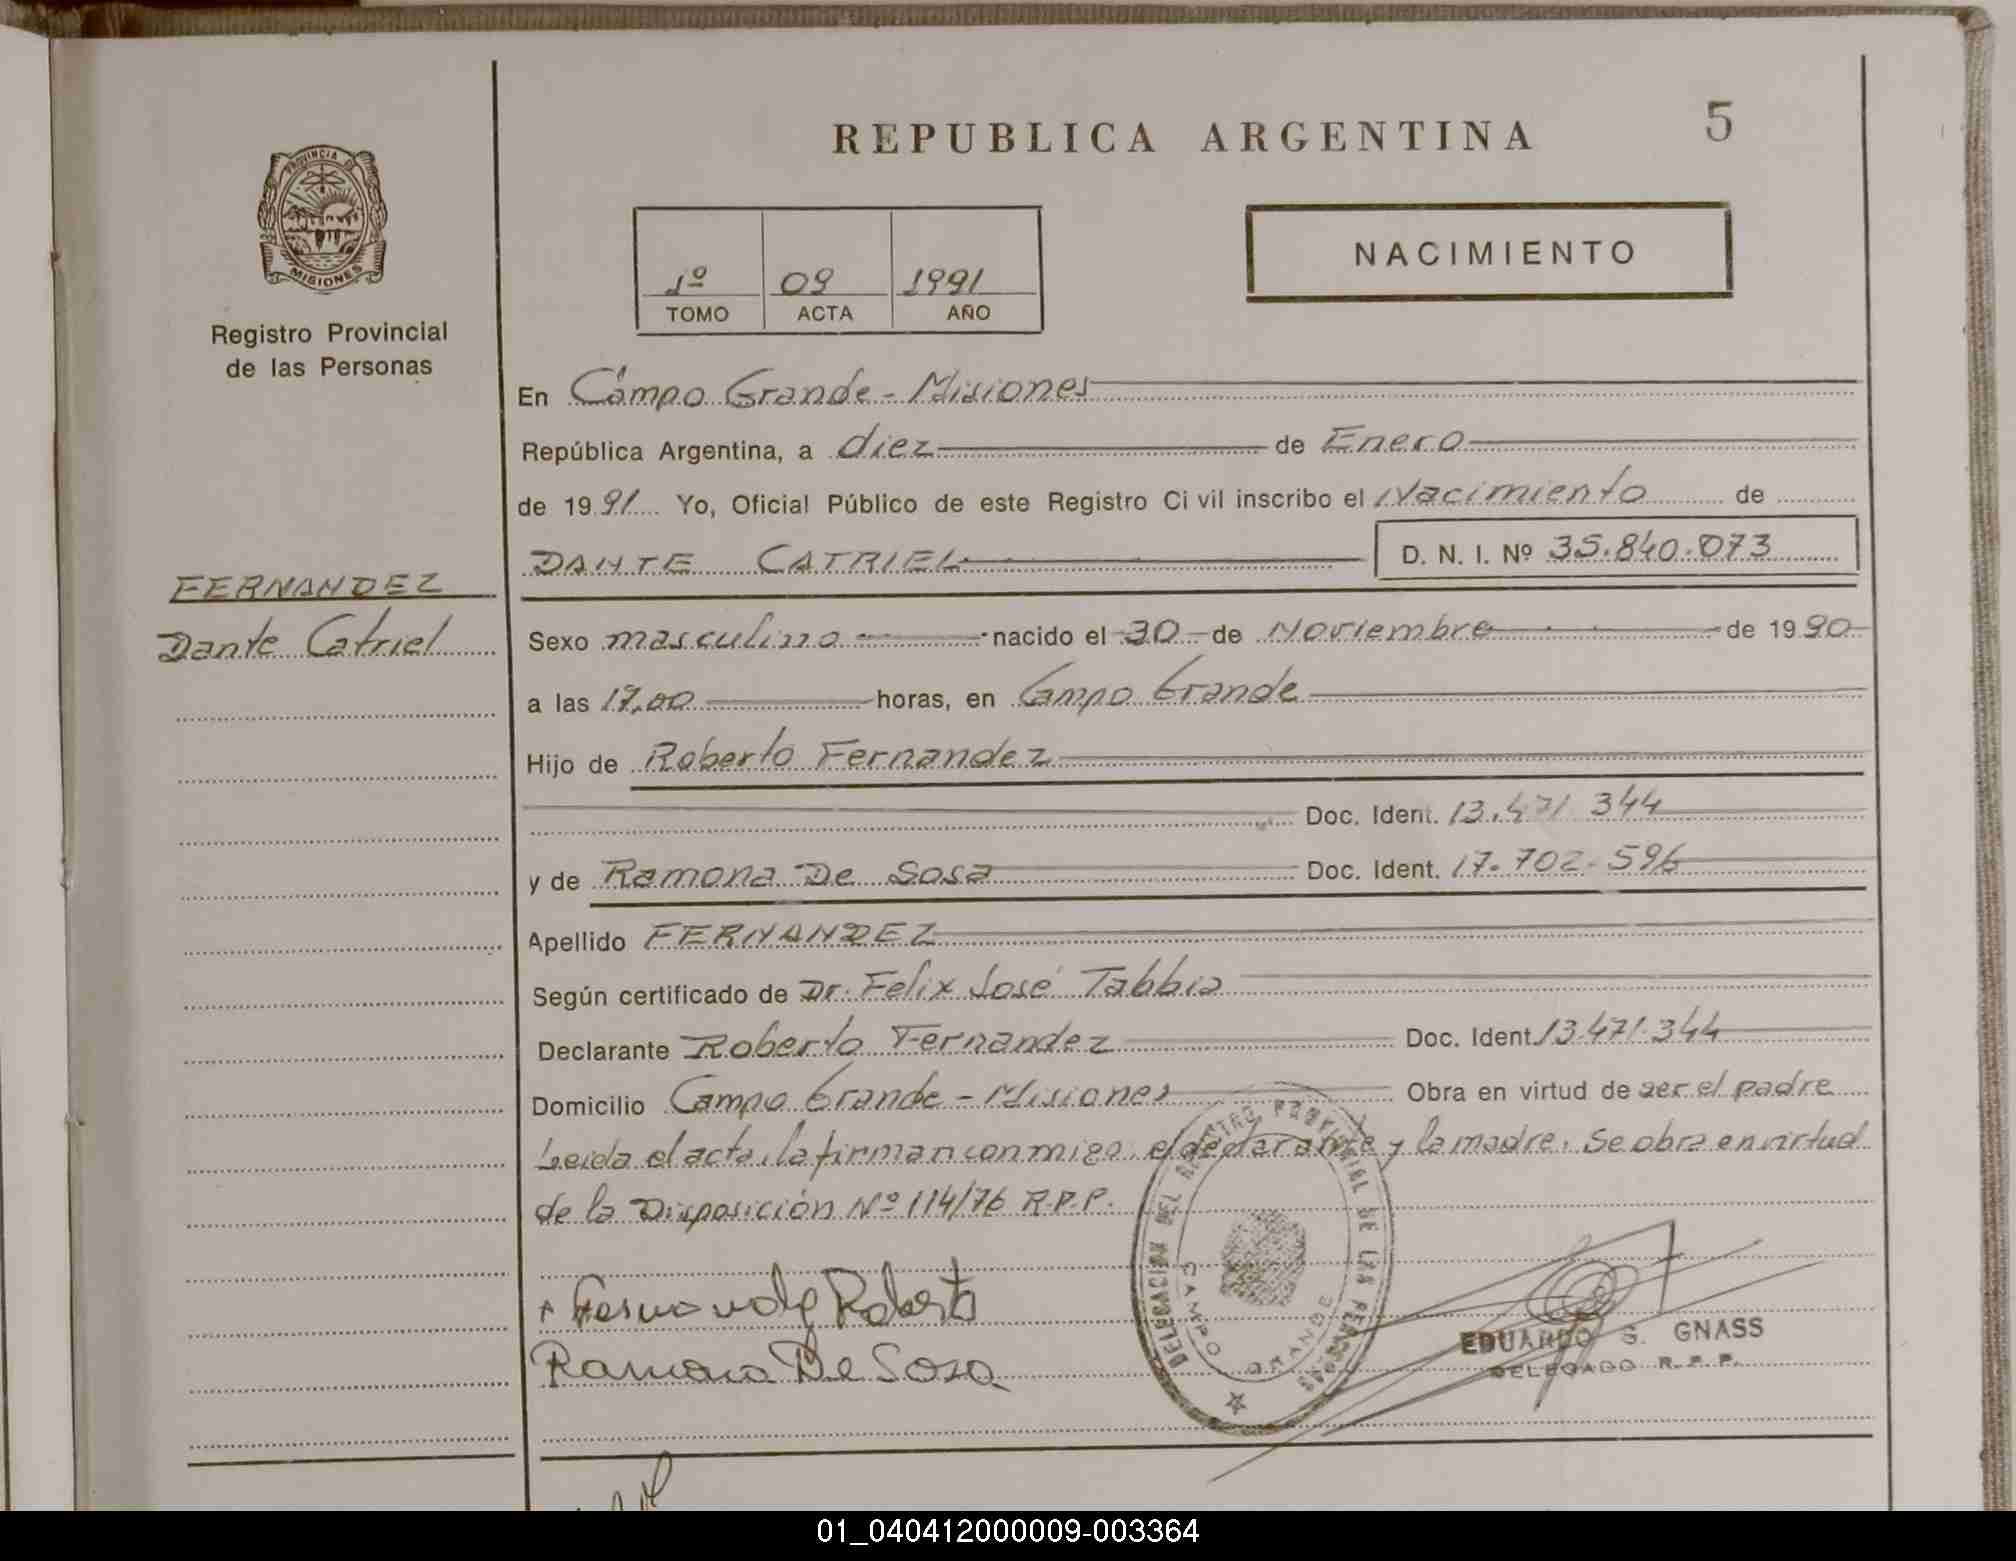 REPUBLICA ARGENTINA
5
PROVINCIA DE
MISIONES
Registro Provincial
de las Personas
1º 09 1991
TOMO ACTA AÑO
NACIMIENTO
En Campo Grande - Misiones
República Argentina, a diez de Enero
de 1991 Yo, Oficial Público de este Registro Ci vil inscribo el Nacimiento de
DANTE CATRIEL D. N. I. Nº 35.840.073
FERNANDEZ
Dante Catriel
Sexo masculino nacido el 30 de Noviembre de 1990
a las 17,00 horas, en Campo Grande
Hijo de Roberto Fernandez
Doc. Ident. 13.471 344
y de Ramona De Sosa Doc. Ident. 17.702.596
Apellido FERNANDEZ
Según certificado de Dr. Felix José Tabbia
Declarante Roberto Fernandez Doc. Ident. 13.471.344
Domicilio Campo Grande - Misiones Obra en virtud de ser el padre
Leida el acta, la firman conmigo, el declarante y la madre. Se obra en virtud
de la Disposición Nº 114/76 R.P.P.
DELEGACION DEL REGISTRO PROVINCIAL DE LAS PERSONAS
CAMPO GRANDE
Fernandez Roberto
Ramona De Sosa
EDUARDO G. GNASS
DELEGADO R.P.P.
01_040412000009-003364